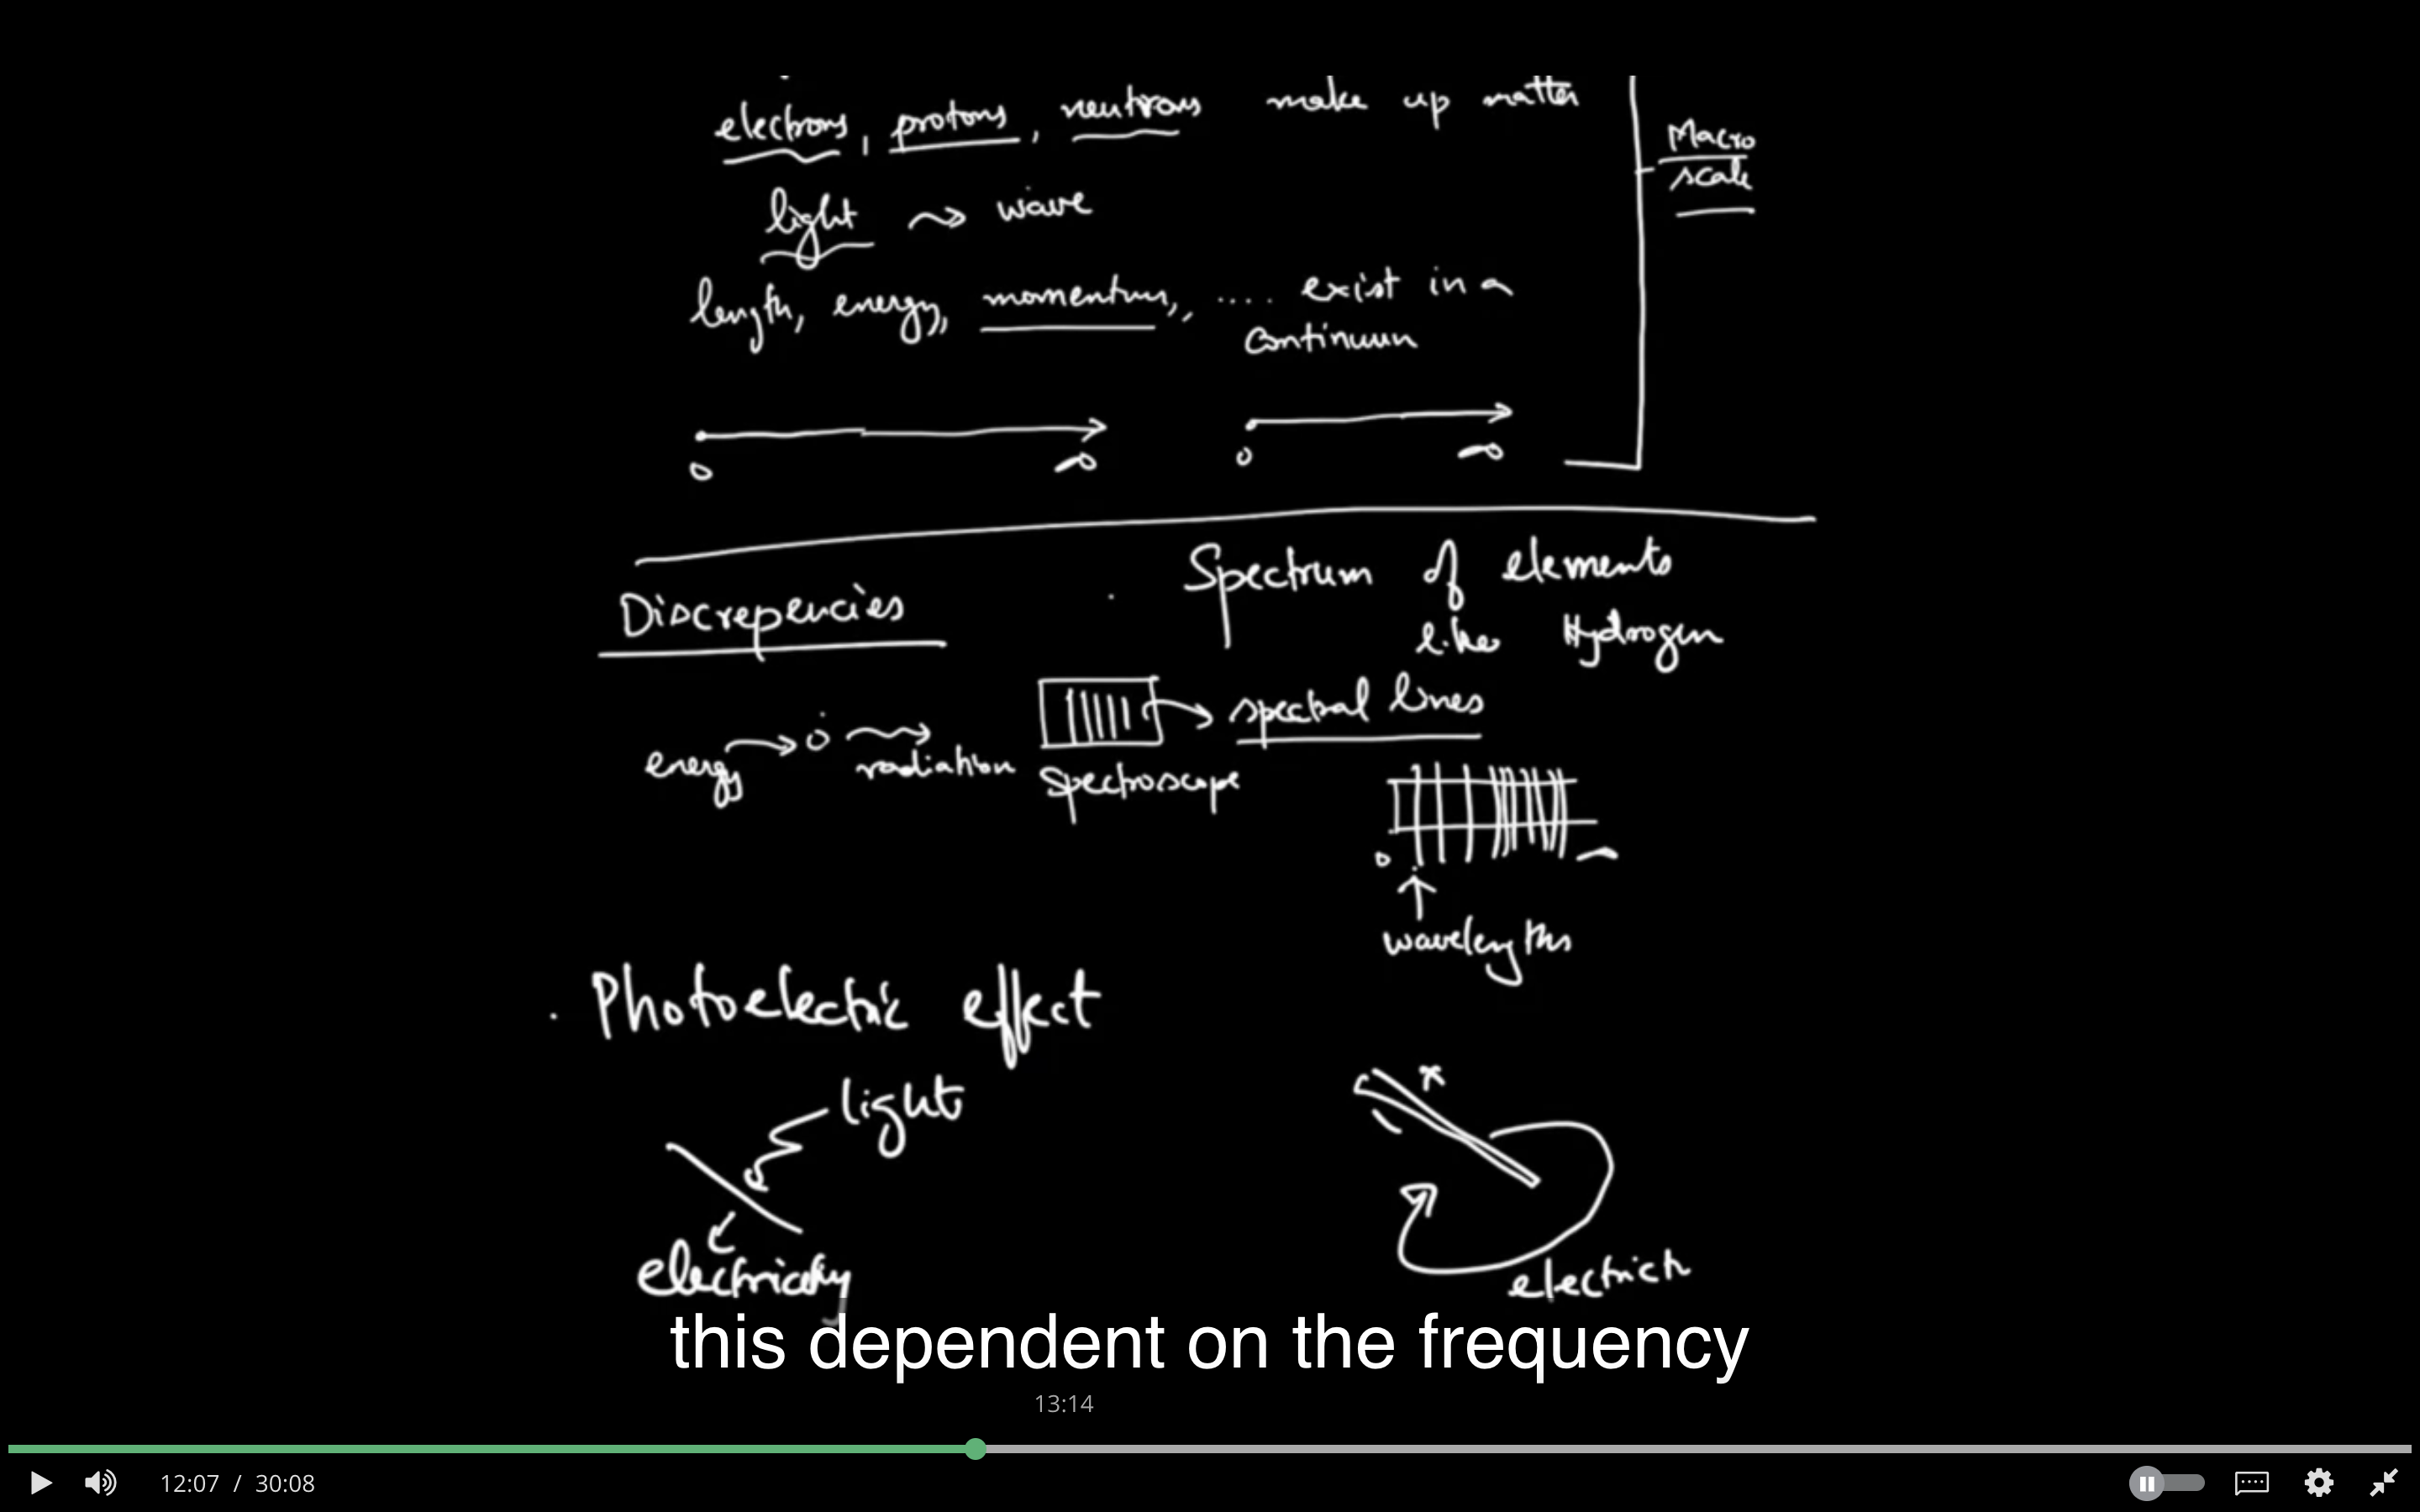 electrons, protons, neutrons make up matter
Macro
scale
light ⇝ wave
length, energy, momentum, .... exist in a
continuum
0 ∞ 0 ∞
Discrepencies
· Spectrum of elements
like Hydrogen
spectral lines
energy radiation
spectroscope
0 ∞
wavelengths
· Photoelectric effect
light
electricity
electrici
this dependent on the frequency
13:14
12:07 / 30:08